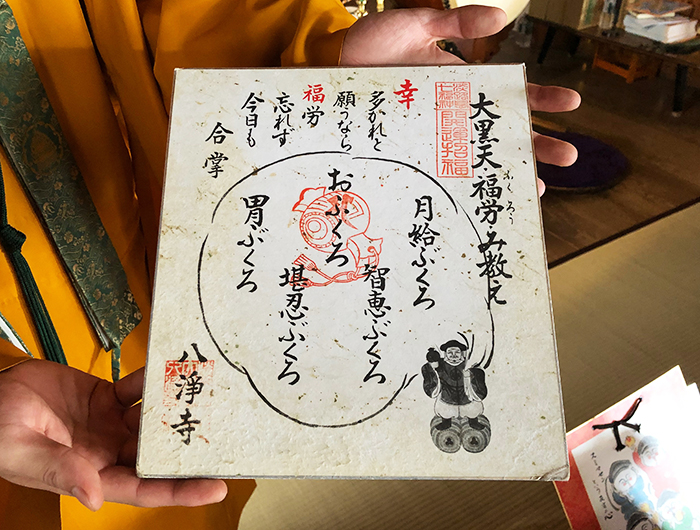 大黒天・福労み教え
ふくろう
開運招福
幸
多かれと
願うなら
福労
忘れず
今日も
合掌
月給ぶくろ
智恵ぶくろ
おふくろ
堪忍ぶくろ
胃ぶくろ
八浄寺